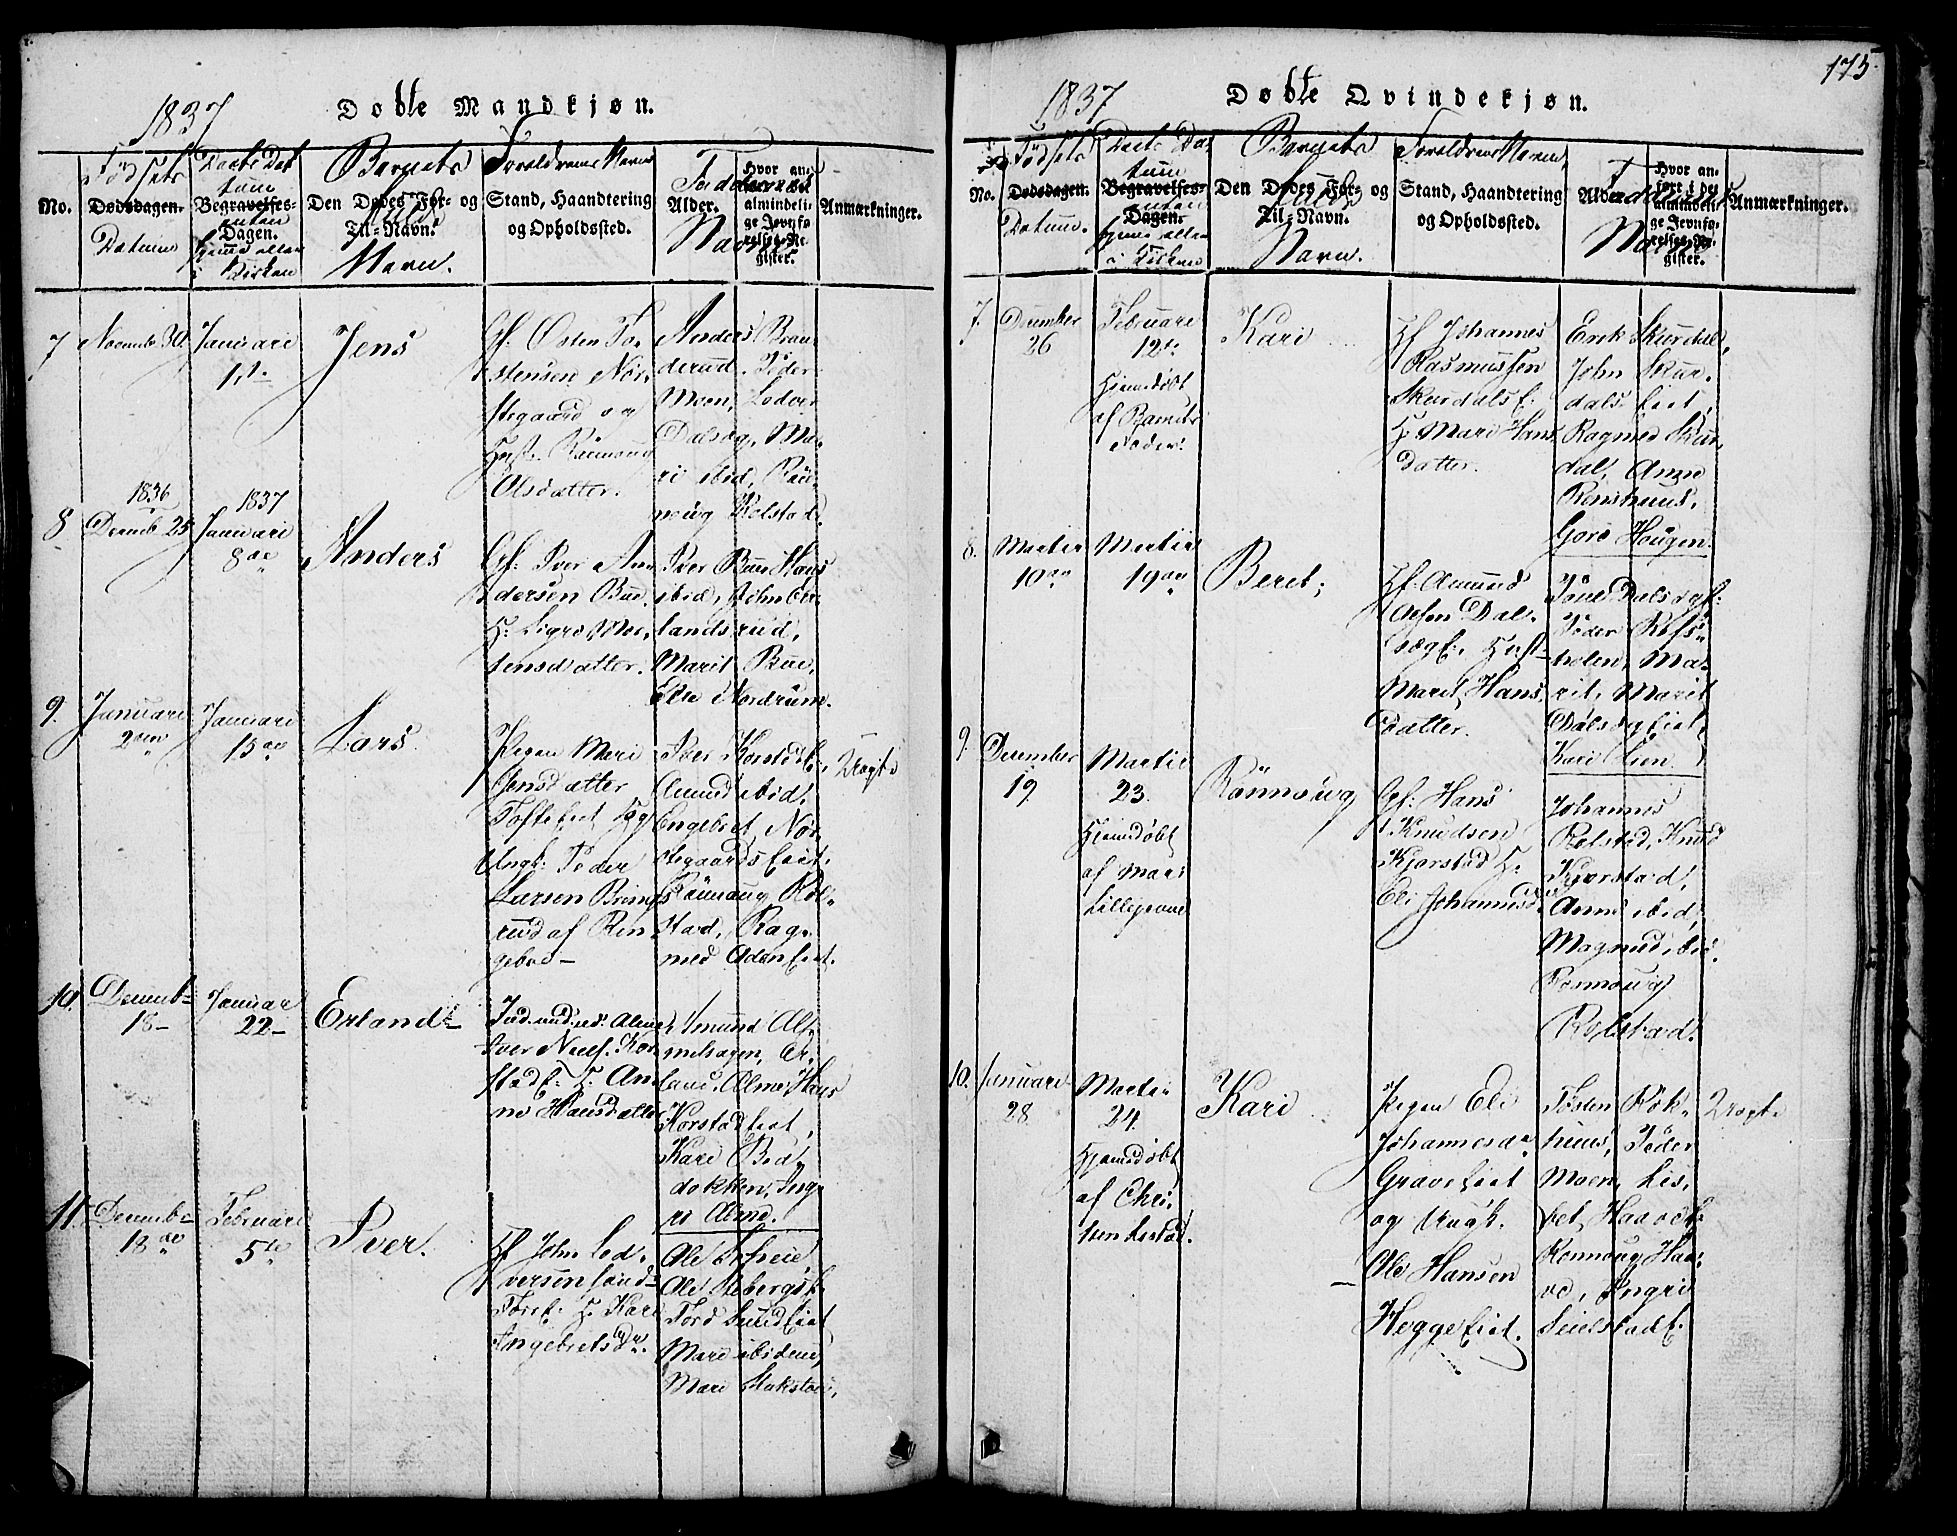 1837
Døde Mandkjøn.
No.
Fødsels
Dødsdagen.
Datum
Daabs Da
tum
Begravelses-
Dagen.
hjemme eller
i Kirken
Barnets
Den Dødes For- og
Til-Navn.
Navn.
Forældrenes Navne
Stand, Haandtering
og Opholdssted.
Faddernes
Alder.
Navne
Hvor an-
ført i det
almindeli-
ge Jevnfø-
relses-Re-
gister.
Anmærkninger.
7
Novemb 30.
Januari
1ste
Jens
Gf: Osten To
stensen Nör-
stegaard og
Hust. Rönnoug
Olsdatter.
Anders Bran
derud. Peder
Moen, Lodver
Dalseg, Ma-
ri ibid, Rön-
noug Kolstad.
8
1836
Decemb 25
1837
Januari
8de
Anders
Gf: Iver An
dersen Bue.
H: Sigri Mor-
tensdatter.
Iver Bue, Hans
ibid, John Er-
landsrud,
Marit Bue,
Eli Nordrum.
9.
Januari
2den
Januari
15de
Lars
Pigen Mari
Jensdatter
Tofteeiet og
Ungk: Peder
Larsen Brings
rud af Rin
geboe
Iver KorstadE.,
Amund ibid,
Engebret Nör-
stegaardseiet.
Rönnoug Kol-
stad, Rag-
ned Aden Eiet.
Uægte
10.
Decemb
18
Januar
22
Erland
Iver Niels. Kor
stadE: H: An
ne Hansdatter
Amund Alf
Er-
land, Alme, Hans
Korstadeiet,
Kari Bod-
dokken, Ing-
ri Alme.
11.
Decemb
18de
Februari
5te
Iver.
Gf John Lod-
versen Sand
H. Kari
Engebretsdr.
Ole Lofreie
Ole Steberg
Tord SundEiet
Mari ibidem,
Mari Stakston.
175
1837
Døde Qvindekjøn.
No.
Fødsels
Dødsdagen.
Datum.
Daabs Da
tum
Begravelses-
Dagen.
hjemme eller
i Kirken
Barnets
Den Dødes For- og
Til-Navn.
Navn.
Forældrenes Navne
Stand, Haandtering
og Opholdssted.
Faddernes
Alder.
Navne
Hvor an-
ført i det
almindeli-
ge Jevnfø-
relses-Re-
gister.
Anmærkninger.
7.
December
26
Februari
12te
Hjemdöbt
af Barnets
Fader.
Kari
Gf Johannes
Rasmussen
SkurdalsE.
H: Mari Hans
datter.
Erik Skurdal,
John Skur-
dals Eiet,
Ragned Skur
dal, Anne
Rönshuus,
Goro Haugen.
8.
Martii
10de
Martii
19de
Beret,
Gf: Amund
Olsen Dal-
segE. Hust
Marit Hans
datter.
Poul DalsegE:
Peder Refs-
holen, Ma-
rit, Marit
DalsegEiet,
Kari Lien.
9.
December
19
Martii
23.
Hjemdöbt
af Mari
Rönnoug
Gf: Hans
Knudsen
Kjorstad H:
Eli Johannesd
Johannes
Kolstad, Knud
Kjorstad,
Anne ibid,
Magnild ibid.
Ronnoug
Kolstad.
10.
Januari
28
Martii
24.
Hjemdöbt
af Chri-
sten Listad.
Kari
Pigen Eli
Johannesdr
GraveEiet
og Ungk.
Ole Hansen
HeggeEiet.
Tosten Rök-
huus, Peder
Moen, Lis-
bet HaaveE.
Ronnoug Haa-
ve, Ingri
SielstadE.
Uægte